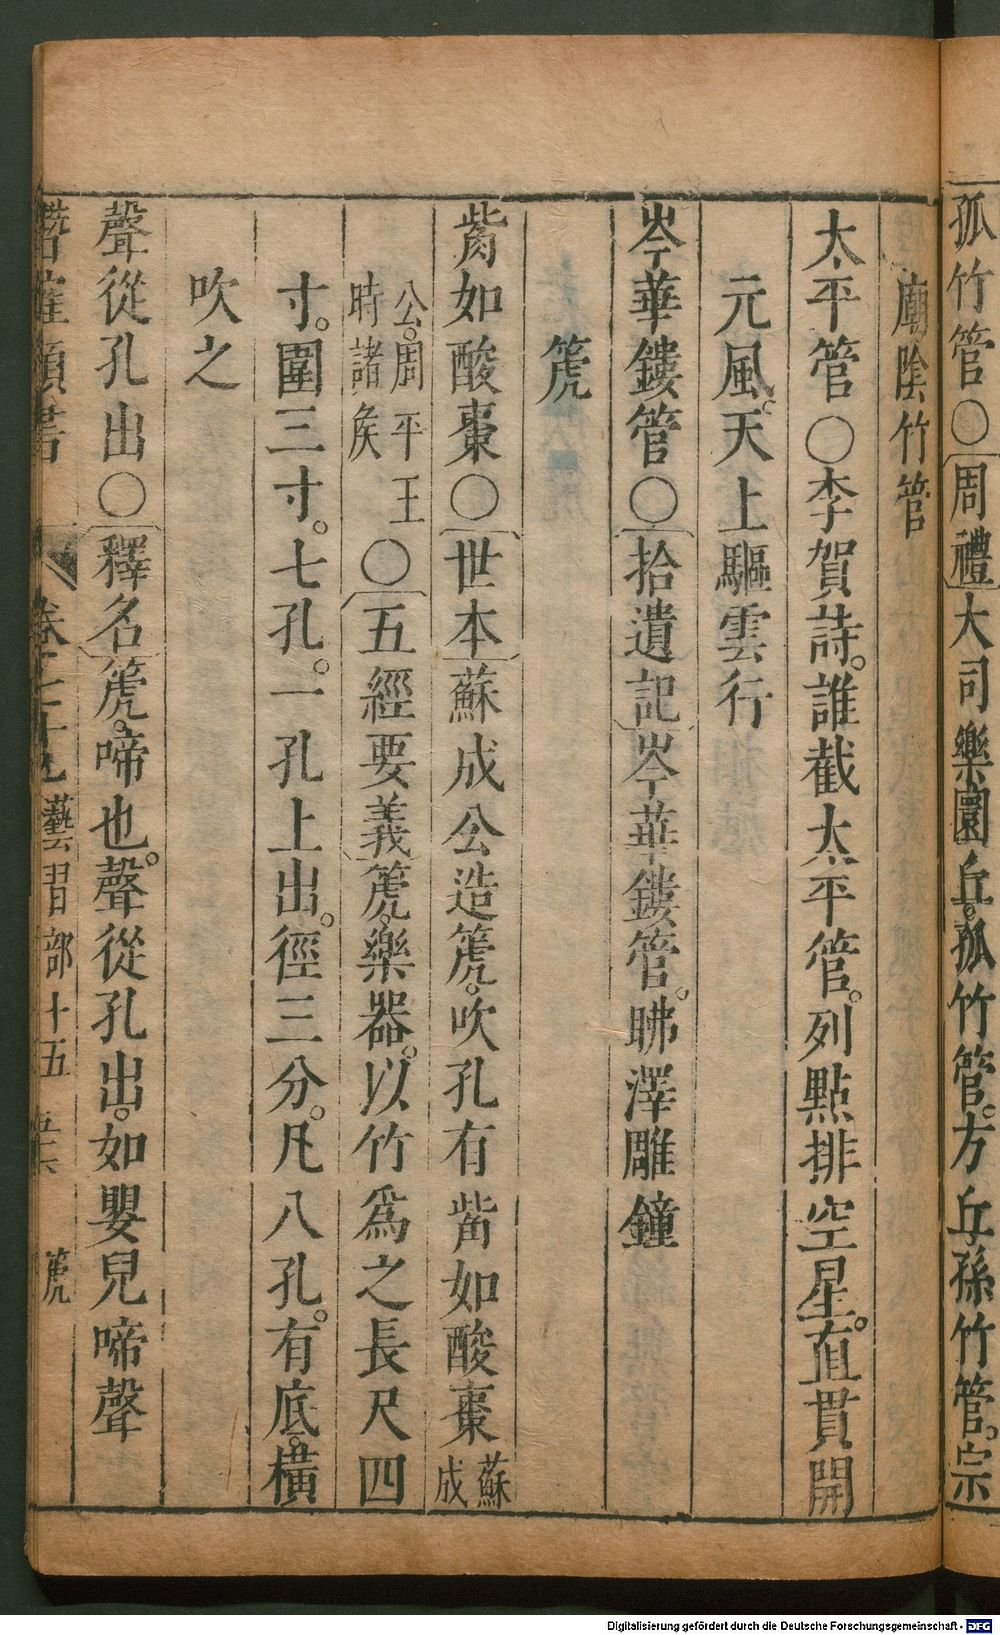 孤竹管○周禮大司樂圜丘。孤竹管。方丘孫竹管。宗
廟陰竹管
太平管○李賀詩。誰截太平管。列點排空星。直貫開
元風。天上驅雲行
岑華鏤管○拾遺記岑華鏤管。昲澤雕鐘
篪
觜如酸棗○世本蘇成公造篪。吹孔有觜如酸棗蘇成
公。周平王時諸矦○五經要義篪。樂器。以竹爲之長尺四
寸。圍三寸。七孔。一孔上出。徑三分。凡八孔。有底。橫
吹之
聲從孔出○釋名篪。啼也。聲從孔出。如嬰兒啼聲
潛確類書 卷七十九 藝習部十五 篪
Digitalisierung gefördert durch die Deutsche Forschungsgemeinschaft - DFG